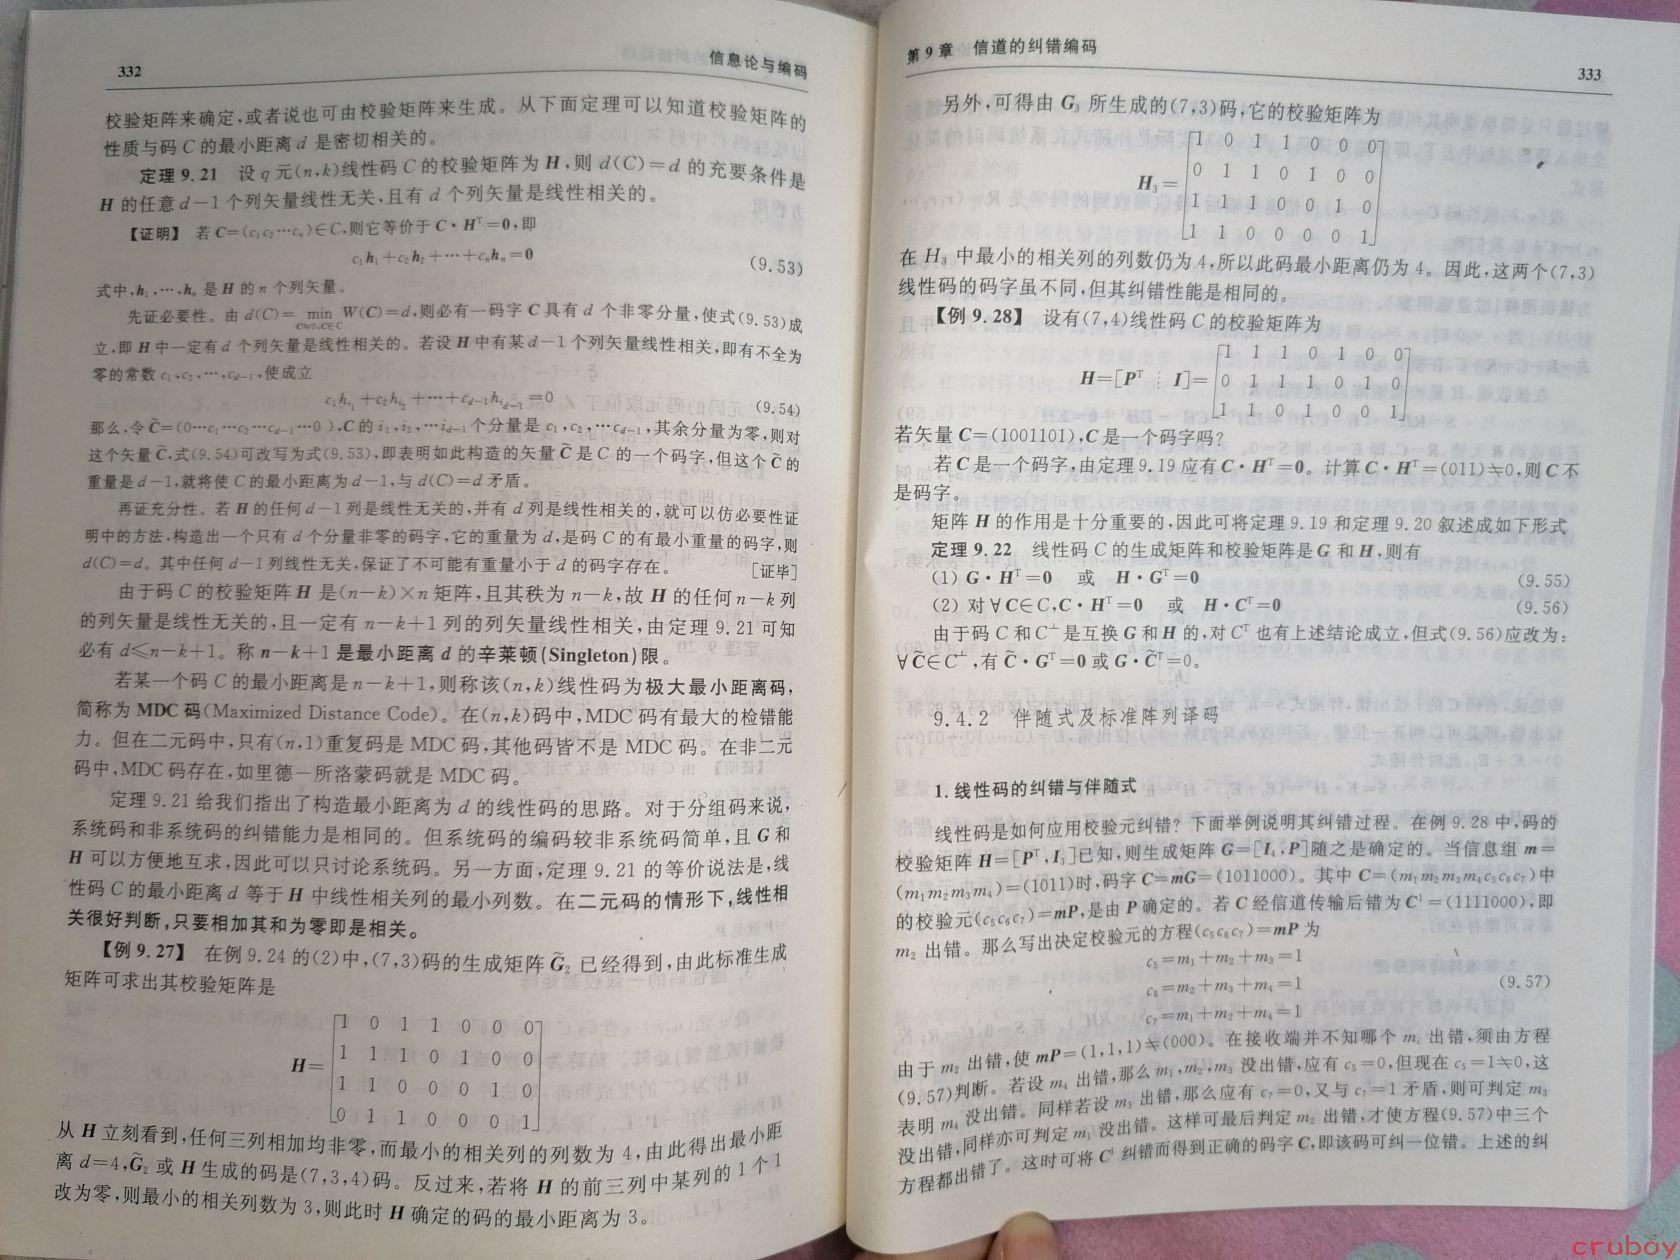 332
信息论与编码
校验矩阵来确定,或者说也可由校验矩阵来生成。从下面定理可以知道校验矩阵的
性质与码 C 的最小距离 d 是密切相关的。
定理 9.21 设 q 元(n,k)线性码 C 的校验矩阵为 H,则 d(C)=d 的充要条件是
H 的任意 d−1 个列矢量线性无关,且有 d 个列矢量是线性相关的。
【证明】 若 C=(c₁c₂⋯cₙ)∈C,则它等价于 C·Hᵀ=0,即
c₁h₁+c₂h₂+⋯+cₙhₙ=0 (9.53)
式中,h₁,⋯,hₙ 是 H 的 n 个列矢量。
先证必要性。由 d(C)= min W(C)=d,则必有一码字 C 具有 d 个非零分量,使式(9.53)成
C≠0,C∈C
立,即 H 中一定有 d 个列矢量是线性相关的。若设 H 中有某 d−1 个列矢量线性相关,即有不全为
零的常数 c₁,c₂,⋯,c_{d−1},使成立
c₁h_{i₁}+c₂h_{i₂}+⋯+c_{d−1}h_{i_{d−1}}=0 (9.54)
那么,令C̃=(0⋯c₁⋯c₂⋯c_{d−1}⋯0),C 的 i₁,i₂,⋯i_{d−1}个分量是 c₁,c₂,⋯c_{d−1},其余分量为零,则对
这个矢量 C̃,式(9.54)可改写为式(9.53),即表明如此构造的矢量 C̃ 是 C 的一个码字,但这个 C̃ 的
重量是 d−1,就将使 C 的最小距离为 d−1,与 d(C)=d 矛盾。
再证充分性。若 H 的任何 d−1 列是线性无关的,并有 d 列是线性相关的,就可以仿必要性证
明中的方法,构造出一个只有 d 个分量非零的码字,它的重量为 d,是码 C 的有最小重量的码字,则
d(C)=d。其中任何 d−1 列线性无关,保证了不可能有重量小于 d 的码字存在。 [证毕]
由于码 C 的校验矩阵 H 是(n−k)×n 矩阵,且其秩为 n−k,故 H 的任何 n−k 列
的列矢量是线性无关的,且一定有 n−k+1 列的列矢量线性相关,由定理 9.21 可知
必有 d⩽n−k+1。称 n−k+1 是最小距离 d 的辛莱顿(Singleton)限。
若某一个码 C 的最小距离是 n−k+1,则称该(n,k)线性码为极大最小距离码,
简称为 MDC 码(Maximized Distance Code)。在(n,k)码中,MDC 码有最大的检错能
力。但在二元码中,只有(n,1)重复码是 MDC 码,其他码皆不是 MDC 码。在非二元
码中,MDC 码存在,如里德-所洛蒙码就是 MDC 码。
定理 9.21 给我们指出了构造最小距离为 d 的线性码的思路。对于分组码来说,
系统码和非系统码的纠错能力是相同的。但系统码的编码较非系统码简单,且 G 和
H 可以方便地互求,因此可以只讨论系统码。另一方面,定理 9.21 的等价说法是,线
性码 C 的最小距离 d 等于 H 中线性相关列的最小列数。在二元码的情形下,线性相
关很好判断,只要相加其和为零即是相关。
【例 9.27】 在例 9.24 的(2)中,(7,3)码的生成矩阵 G̃₂ 已经得到,由此标准生成
矩阵可求出其校验矩阵是
1 0 1 1 0 0 0
1 1 1 0 1 0 0
H=
1 1 0 0 0 1 0
0 1 1 0 0 0 1
从 H 立刻看到,任何三列相加均非零,而最小的相关列的列数为 4,由此得出最小距
离 d=4,G̃₂ 或 H 生成的码是(7,3,4)码。反过来,若将 H 的前三列中某列的 1 个 1
改为零,则最小的相关列数为 3,则此时 H 确定的码的最小距离为 3。
第 9 章 信道的纠错编码
333
另外,可得由 G₃ 所生成的(7,3)码,它的校验矩阵为
1 0 1 1 0 0 0
0 1 1 0 1 0 0
H₃=
1 1 1 0 0 1 0
1 1 0 0 0 0 1
在 H₃ 中最小的相关列的列数仍为 4,所以此码最小距离仍为 4。因此,这两个(7,3)
线性码的码字虽不同,但其纠错性能是相同的。
【例 9.28】 设有(7,4)线性码 C 的校验矩阵为
1 1 1 0 1 0 0
H=[Pᵀ ⋮ I]= 0 1 1 1 0 1 0
1 1 0 1 0 0 1
若矢量 C=(1001101),C 是一个码字吗?
若 C 是一个码字,由定理 9.19 应有 C·Hᵀ=0。计算 C·Hᵀ=(011)≠0,则 C 不
是码字。
矩阵 H 的作用是十分重要的,因此可将定理 9.19 和定理 9.20 叙述成如下形式
定理 9.22 线性码 C 的生成矩阵和校验矩阵是 G 和 H,则有
(1) G·Hᵀ=0 或 H·Gᵀ=0 (9.55)
(2) 对∀C∈C,C·Hᵀ=0 或 H·Cᵀ=0 (9.56)
由于码 C 和 C⊥是互换 G 和 H 的,对 Cᵀ 也有上述结论成立,但式(9.56)应改为:
∀C̃∈C⊥,有 C̃·Gᵀ=0 或 G·C̃ᵀ=0。
9.4.2 伴随式及标准阵列译码
1. 线性码的纠错与伴随式
线性码是如何应用校验元纠错? 下面举例说明其纠错过程。在例 9.28 中,码的
校验矩阵 H=[Pᵀ,I₃]已知,则生成矩阵 G=[I₄,P]随之是确定的。当信息组 m=
(m₁m₂m₃m₄)=(1011)时,码字 C=mG=(1011000)。其中 C=(m₁m₂m₃m₄c₅c₆c₇)中
的校验元(c₅c₆c₇)=mP,是由 P 确定的。若 C 经信道传输后错为 C¹=(1111000),即
m₂ 出错。那么写出决定校验元的方程(c₅c₆c₇)=mP 为
c₅=m₁+m₂+m₃=1
c₆=m₂+m₃+m₄=1 (9.57)
c₇=m₁+m₂+m₄=1
由于 m₂ 出错,使 mP=(1,1,1)≠(000)。在接收端并不知哪个 mᵢ 出错,须由方程
(9.57)判断。若设 m₄ 出错,那么 m₁,m₂,m₃ 没出错,应有 c₅=0,但现在 c₅=1≠0,这
表明 m₄ 没出错。同样若设 m₃ 出错,那么应有 c₇=0,又与 c₇=1 矛盾,则可判定 m₃
没出错,同样亦可判定 m₁ 没出错。这样可最后判定 m₂ 出错,才使方程(9.57)中三个
方程都出错了。这时可将 C¹ 纠错而得到正确的码字 C,即该码可纠一位错。上述的纠
cruboy